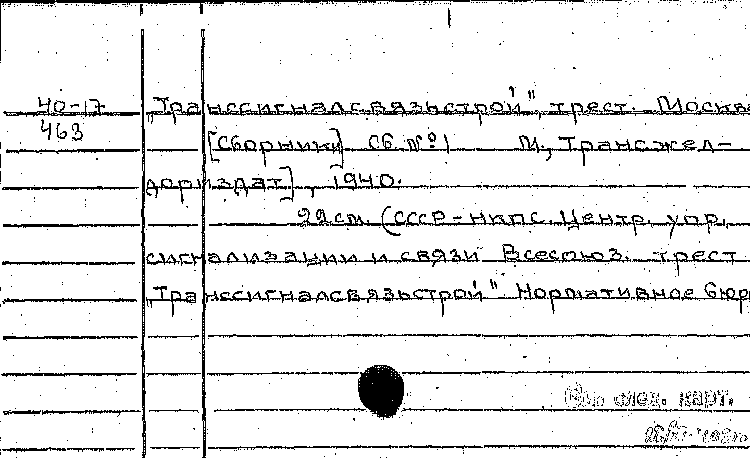 40-17 „Транссигналсвязьстрой", трест. Москва
463 [Сборники] Сб. №1 М., Трансжел-
дориздат], 1940.
22 см. (СССР-НКПС. Центр. упр.
сигнализации и связи Всесоюз. трест
„Транссигналсвязьстрой" Нормативное бюр
карт.